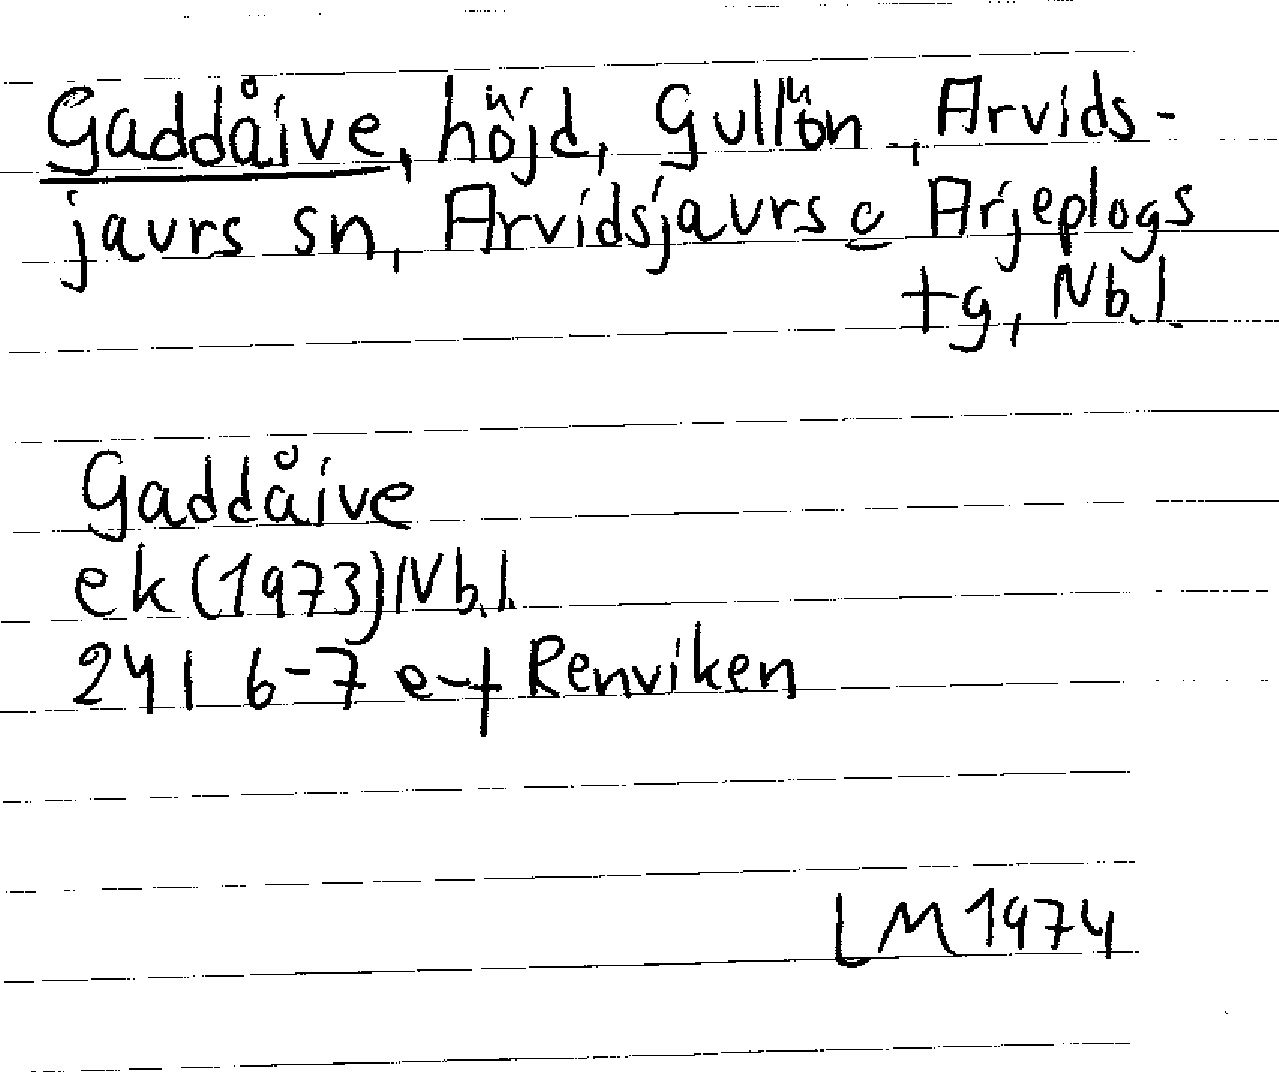 Gaddåive, höjd, Gullön, Arvids-
jaurs sn, Arvidsjaurs o Arjeplogs
tg, Nb.l.
Gaddåive
ek (1973) Nb.l.
24I 6-7 e-f Renviken
LM 1974